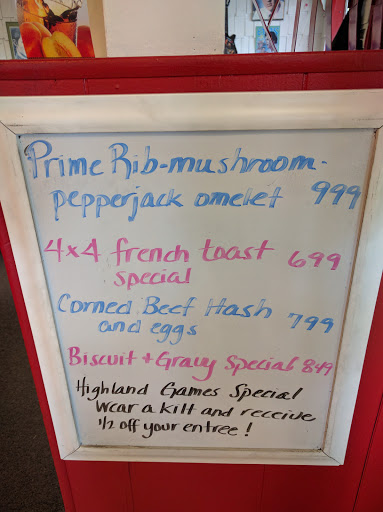 Prime Rib-mushroom-
pepperjack omelet 999
4x4 french toast 699
special
Corned Beef Hash
and eggs 799
Biscuit + Gravy Special 849
Highland Games Special
Wear a kilt and receive
1/2 off your entree!